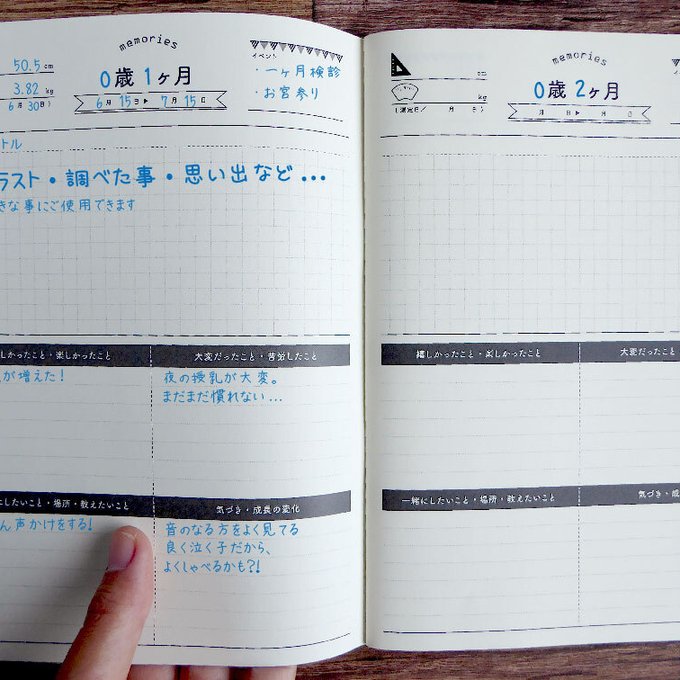 memories
50.5cm
0歳1ヶ月
3.82kg
6月30日)
6月15日▶7月15日
イベント
・一ヶ月検診
・お宮参り
トル
ラスト・調べた事・思い出など...
きな事にご使用できます
しかったこと・楽しかったこと
大変だったこと・苦労したこと
が増えた!
夜の授乳が大変。
まだまだ慣れない...
にしたいこと・場所・教えたいこと
気づき・成長の変化
ん声かけをする!
音のなる方をよく見てる
良く泣く子だから、
よくしゃべるかも?!
memories
cm
0歳2ヶ月
kg
(測定日/ 月 日)
月 日▶ 月 日
嬉しかったこと・楽しかったこと
大変だったこと
一緒にしたいこと・場所・教えたいこと
気づき・成